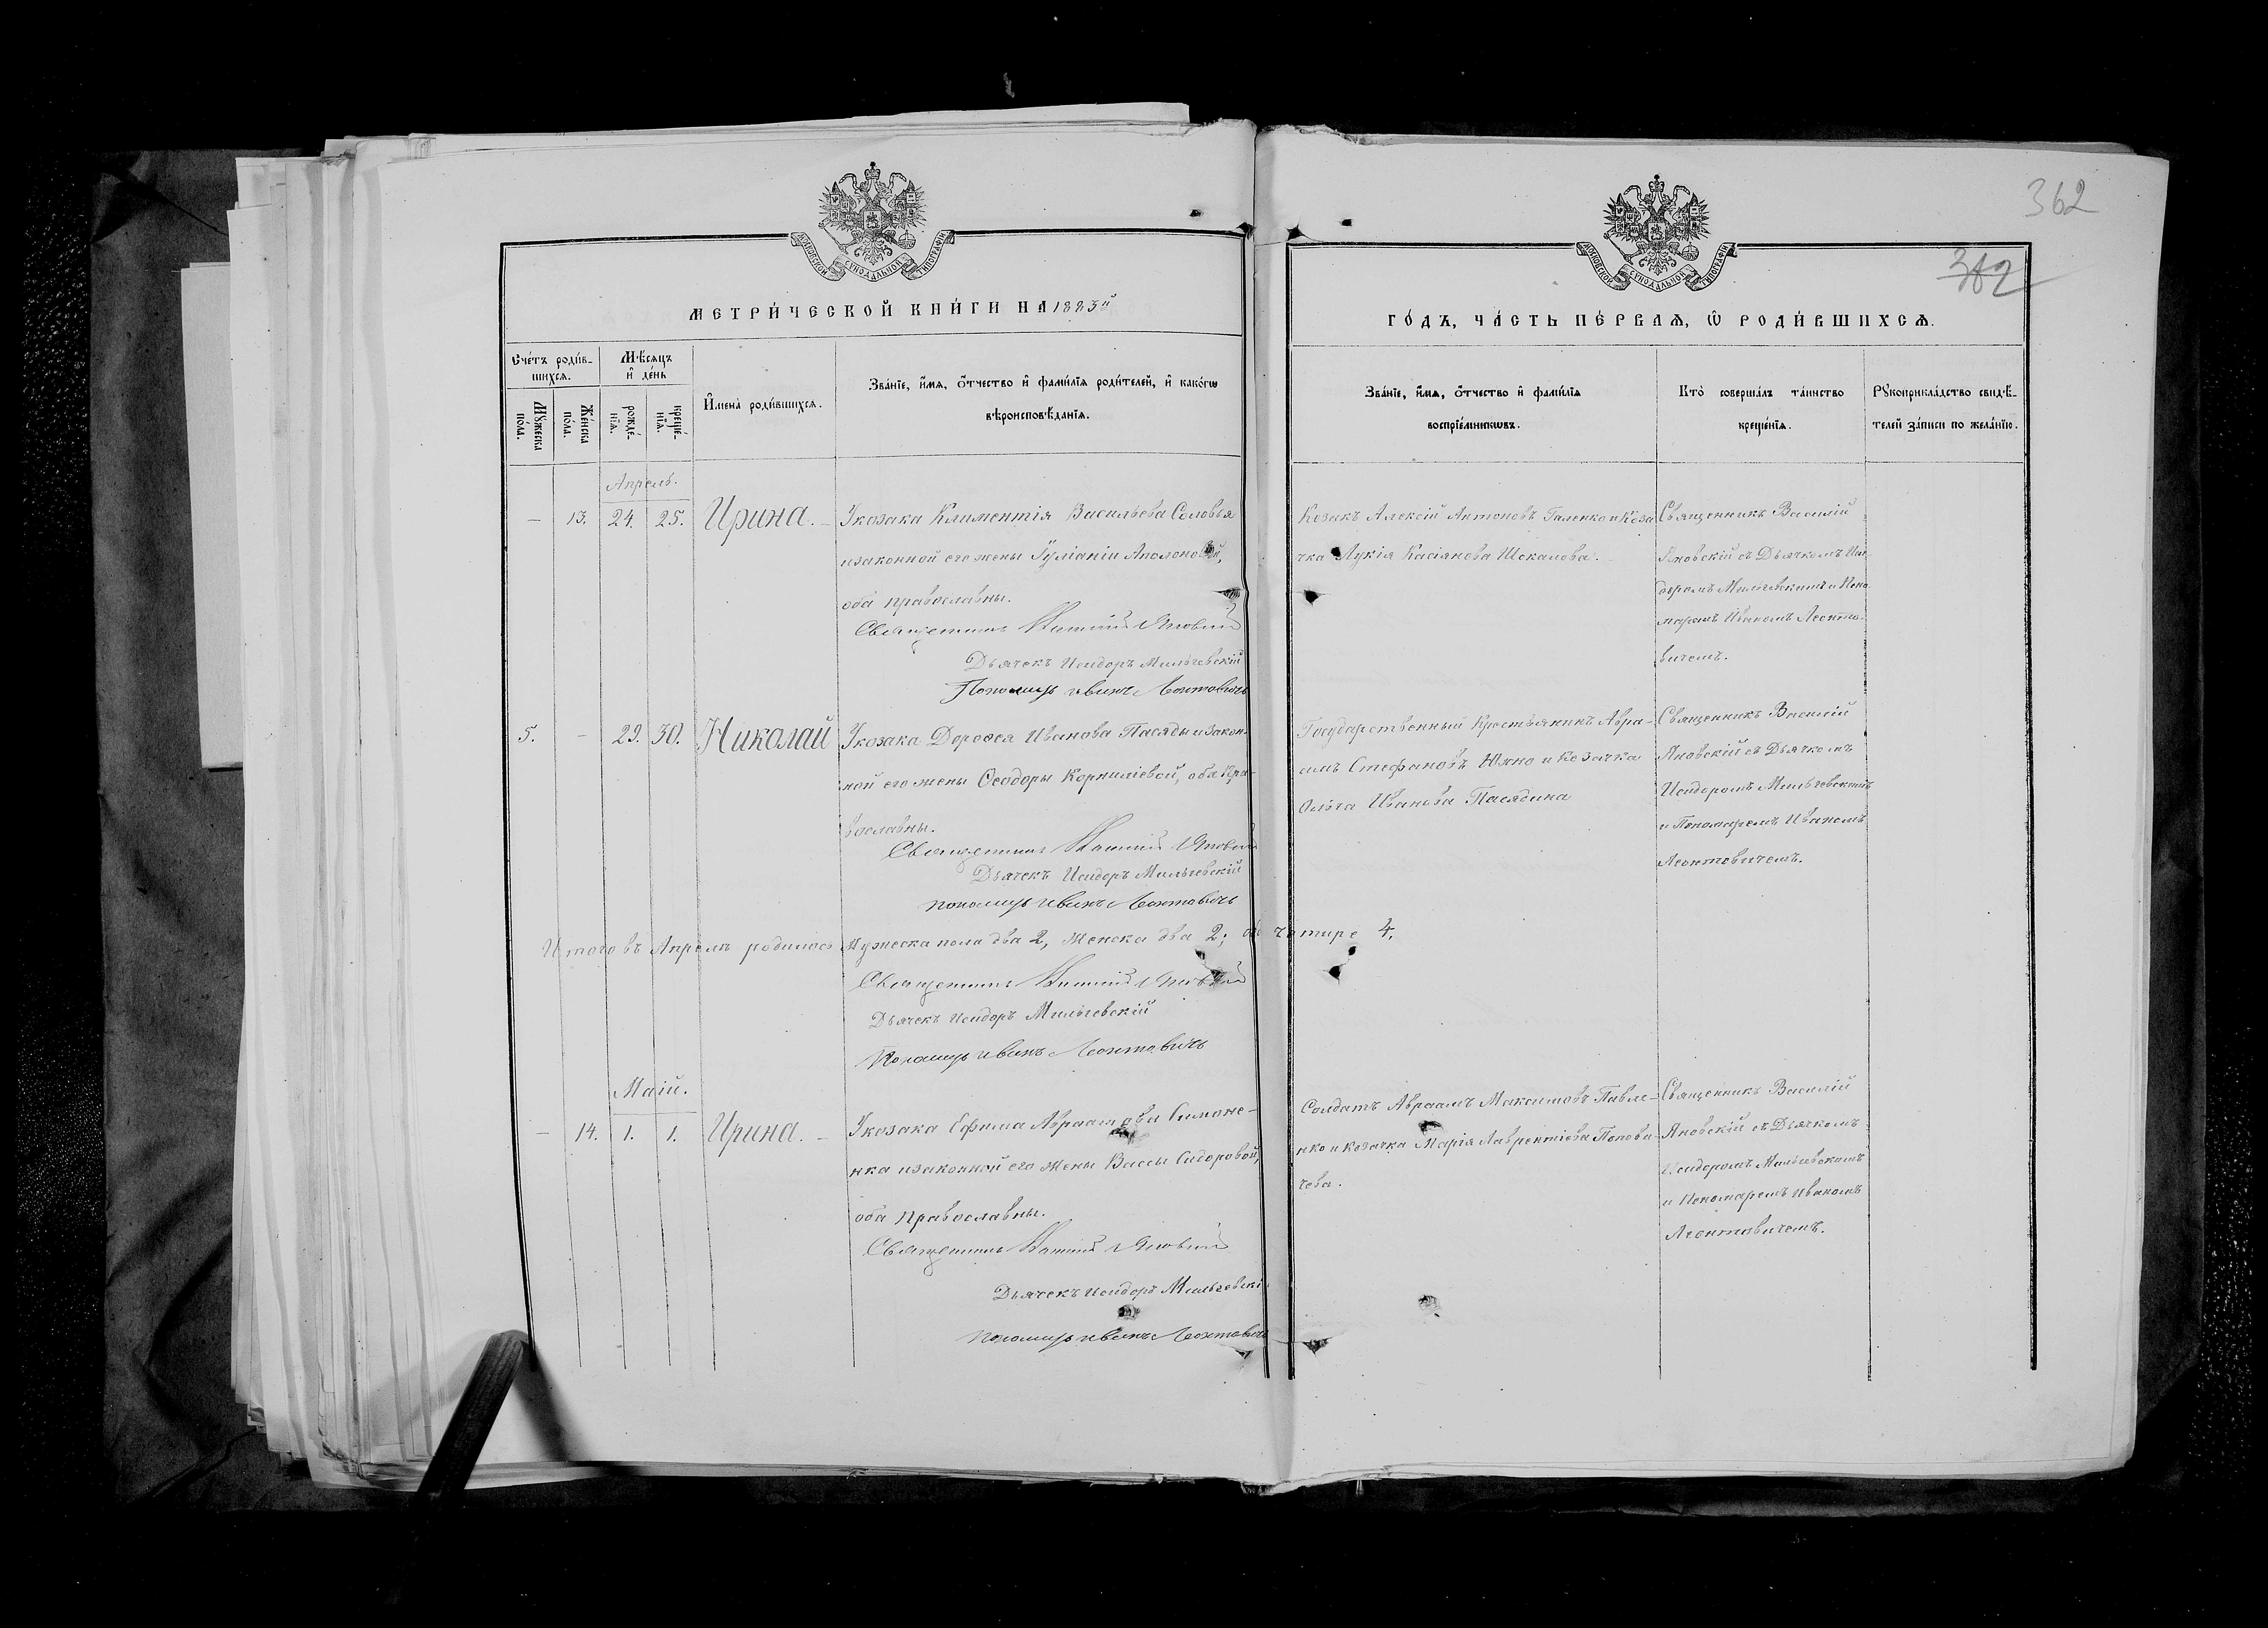 362
382
МОСКОВСКОЙ СѴНОДАЛЬНОЙ ТИПОГРАФІИ
МОСКОВСКОЙ СѴНОДАЛЬНОЙ ТИПОГРАФІИ
МЕТРИ́ЧЕСКОЙ КНИ́ГИ НА 1883й
ГО́ДЪ, ЧА́СТЬ ПЕ́РВАѦ, Ѡ҆ РОДИ́ВШИХСѦ.
Сче́тъ роди́в-
шихсѧ.
Мѣ́сѧцъ
и҆ де́нь
И҆мена̀ роди́вшихсѧ.
Зва́нїе, и҆́мѧ, ѻ҆́тчество и҆ фами́лїѧ роди́телей, и҆ како́гѡ
вѣроисповѣ́данїѧ.
Мꙋ́жеска
по́ла.
Же́нска
по́ла.
рожде́-
нїѧ.
креще́-
нїѧ.
Зва́нїе, и҆́мѧ, ѻ҆́тчество и҆ фами́лїѧ
воспрїе́мникѡвъ.
Кто̀ соверша́лъ та́инство
креще́нїѧ.
Рꙋкоприкла́дство свидѣ́-
телей за́писи по жела́нїю.
Апрель.
— 13. 24. 25. Ирина. — У козака Климентія Васильева Соловья
и законной его жены Іуліаніи Аполоновой,
оба православны.
Священникъ Василій Яновскій
Дьячекъ Исидоръ Мильгевскій
Пономарь Иванъ Леонтовичь
Козакъ Алексій Антоновъ Галенко и Коза
чка Лукія Касіянова Шокалова.
Священникъ Василій
Яновскій съ Дьячкомъ Иси
доромъ Мильгевскимъ и Поно
маремъ Иваномъ Леонто-
вичемъ.
5. — 29. 30. Николай У козака Дорофея Иванова Пасяды и закон-
ной его жены Ѳеодоры Корниліевой, оба Пра-
вославны.
Священникъ Василій Яновскій
Дьячекъ Исидоръ Мильгевскій
пономарь Иванъ Леонтовичь
Государственный Крестьянинъ Авра-
амъ Стефановъ Юхно и Козачка
Ольга Иванова Пасядина
Священникъ Василій
Яновскій съ Дьячкомъ
Исидоромъ Мильгевскимъ
и Пономаремъ Иваномъ
Леонтовичемъ.
Итого въ Апреле родилось Мужеска пола два 2, Женска два 2; об. четире 4.
Священникъ Василій Яновскій
Дьячекъ Исидоръ Мильгевскій
Пономарь Иванъ Леонтовичь
Маій.
— 14. 1. 1. Ирина. — У козака Ефима Авраамова Симоне-
нка и законной его жены Вассы Сидоровой,
оба Православны.
Священникъ Василій Яновскій
Дьячекъ Исидоръ Мильгевскі
пономарь Иванъ Леонтовичь
Солдатъ Авраамъ Максимовъ Павле-
нко и козачка Марія Лаврентіева Попови-
чева.
Священникъ Василій
Яновскій съ Дьячкомъ
Исидоромъ Мильгевскимъ
и Пономаремъ Иваномъ
Леонтовичемъ.